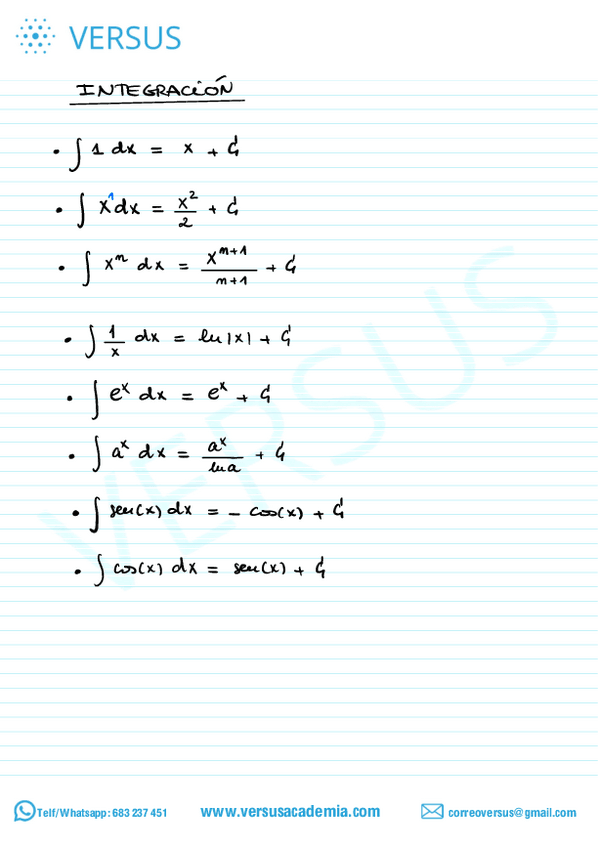 VERSUS
INTEGRACIÓN
• ∫ 1 dx = x + C
• ∫ x¹ dx = x²/2 + C
• ∫ xᵐ dx = xᵐ⁺¹/m+1 + C
• ∫ 1/x dx = ln|x| + C
• ∫ eˣ dx = eˣ + C
• ∫ aˣ dx = aˣ/ln a + C
• ∫ sen(x) dx = - cos(x) + C
• ∫ cos(x) dx = sen(x) + C
VERSUS
Telf/Whatsapp: 683 237 451 www.versusacademia.com correoversus@gmail.com